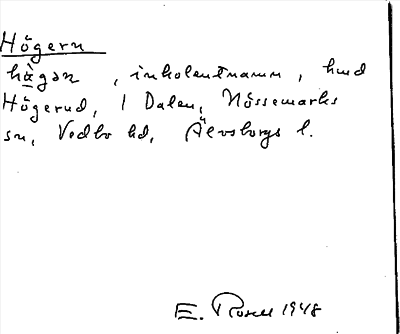 Högern
hà̱gən , inkolentnamn, hmd
Högerud, 1 Dalen, Nössemarks
sn, Vedbo hd, Älvsborgs l.
E. Rosell 1948